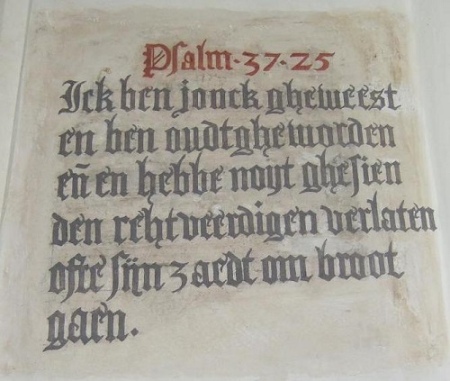 Psalm·37·25
Ick ben jonck gheweest
en ben oudt gheworden
en̄ en hebbe noyt ghesien
den rehtveerdigen verlaten
ofte sijn zaedt om broot
gaen.